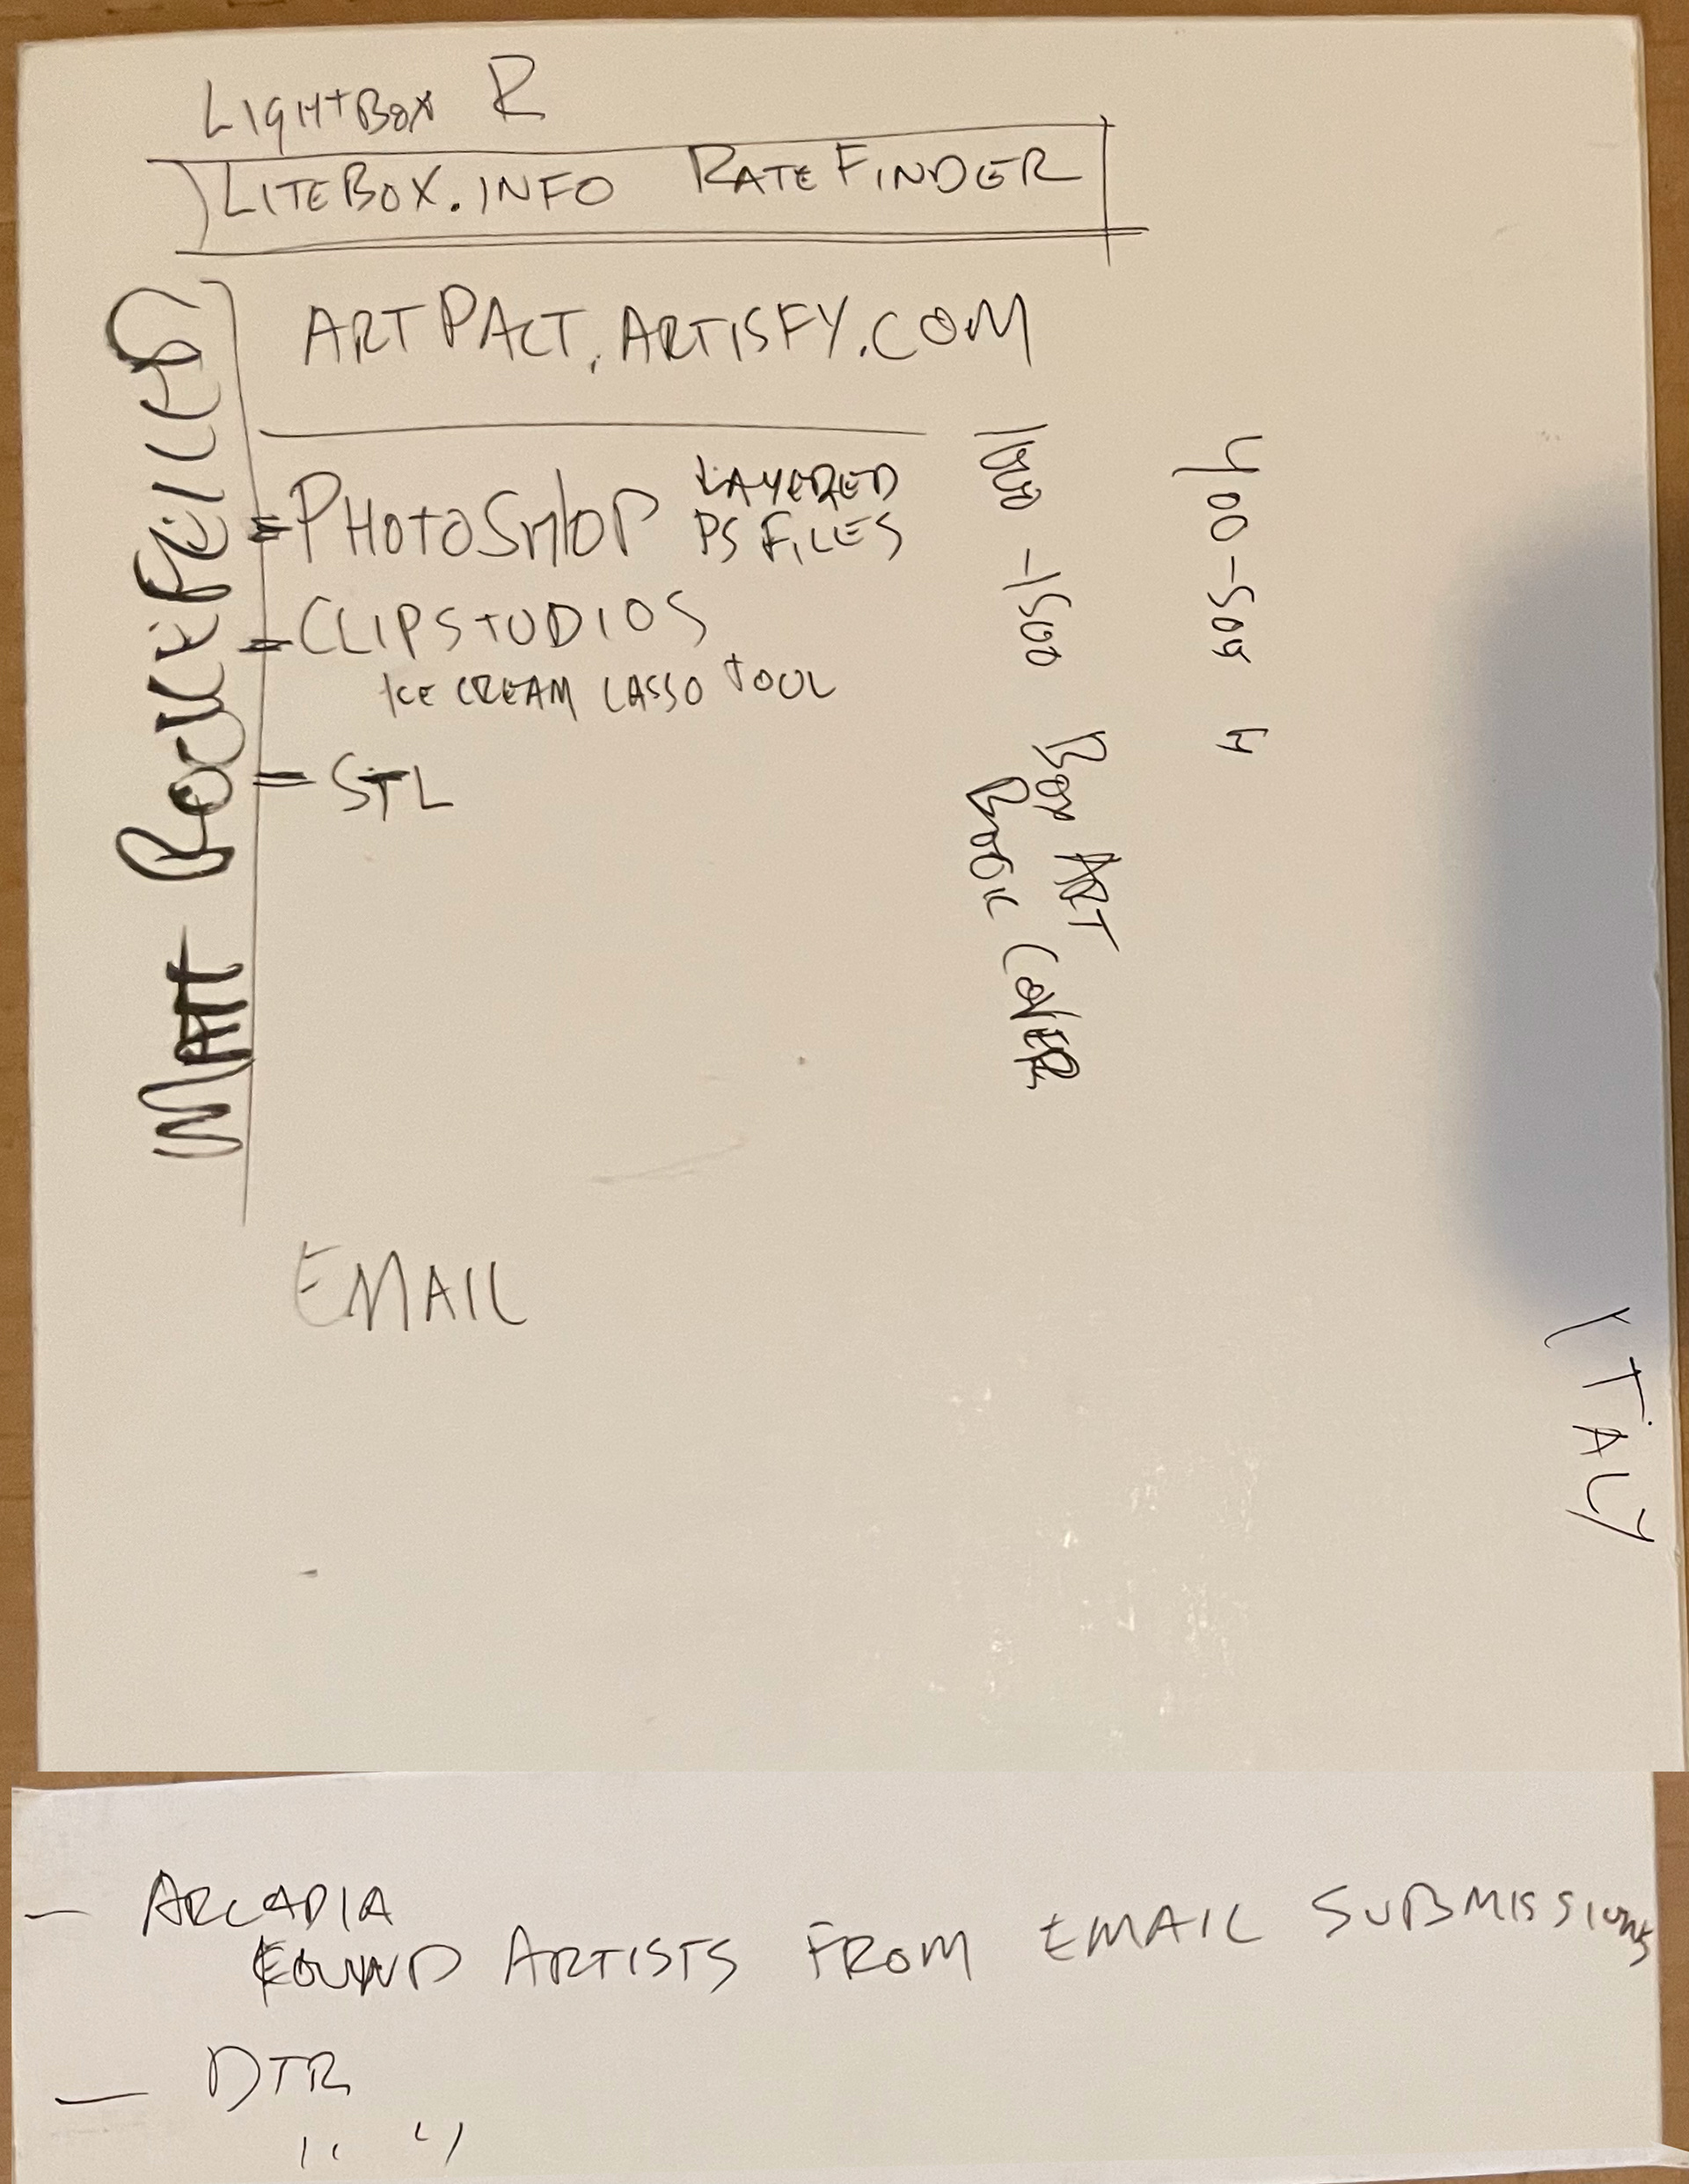 LIGHTBOX R
LITEBOX.INFO RATE FINDER
ARTPACT.ARTISFY.COM
PHOTOSHOP LAYERED
PS FILES
CLIPSTUDIOS
ICE CREAM LASSO TOOL
STL
MATT
1000-1500
BOX ART
BOOK COVER
400-500
EMAIL
ITALY
- ARCADIA
FOUND ARTISTS FROM EMAIL SUBMISSIONS
- DTR
" "